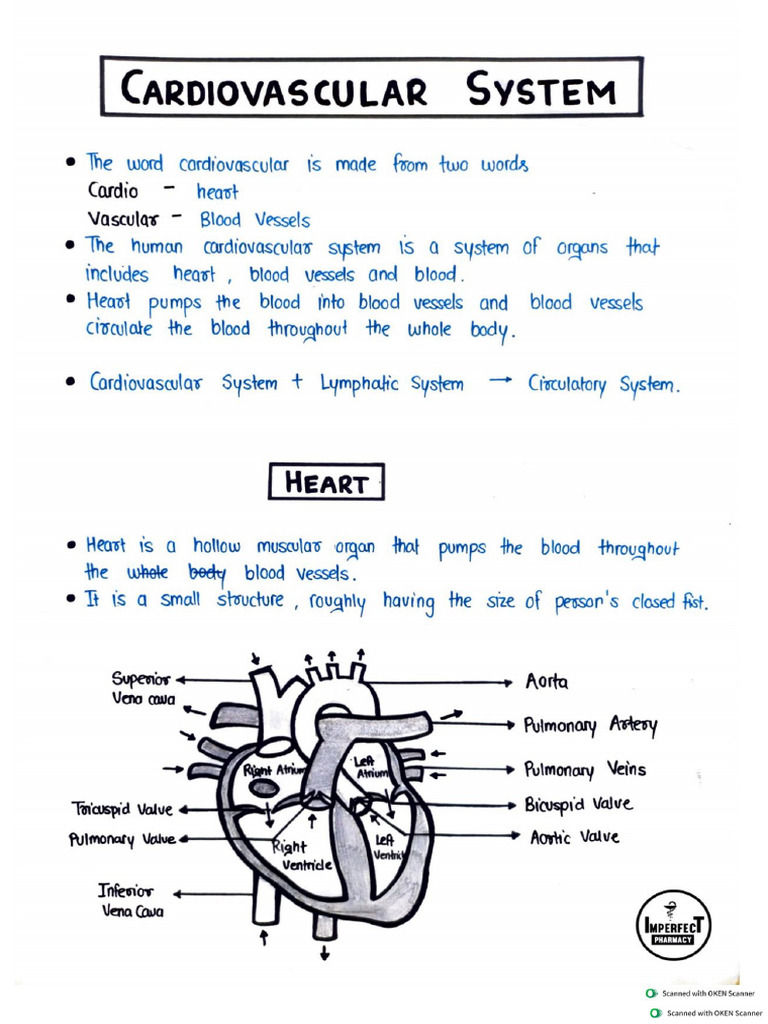 CARDIOVASCULAR SYSTEM
• The word cardiovascular is made from two words
Cardio - heart
Vascular - Blood Vessels
• The human cardiovascular system is a system of organs that
includes heart, blood vessels and blood.
• Heart pumps the blood into blood vessels and blood vessels
circulate the blood throughout the whole body.
• Cardiovascular System + Lymphatic System → Circulatory System.
HEART
• Heart is a hollow muscular organ that pumps the blood throughout
the whole body blood vessels.
• It is a small structure, roughly having the size of person's closed fist.
Superior
Vena cava
Aorta
Pulmonary Artery
Right Atrium
Left
Atrium
Pulmonary Veins
Tricuspid Valve
Bicuspid Valve
Pulmonary Valve
Aortic Valve
Right
Ventricle
Left
Ventricle
Inferior
Vena Cava
IMPERFECT
PHARMACY
Scanned with OKEN Scanner
Scanned with OKEN Scanner